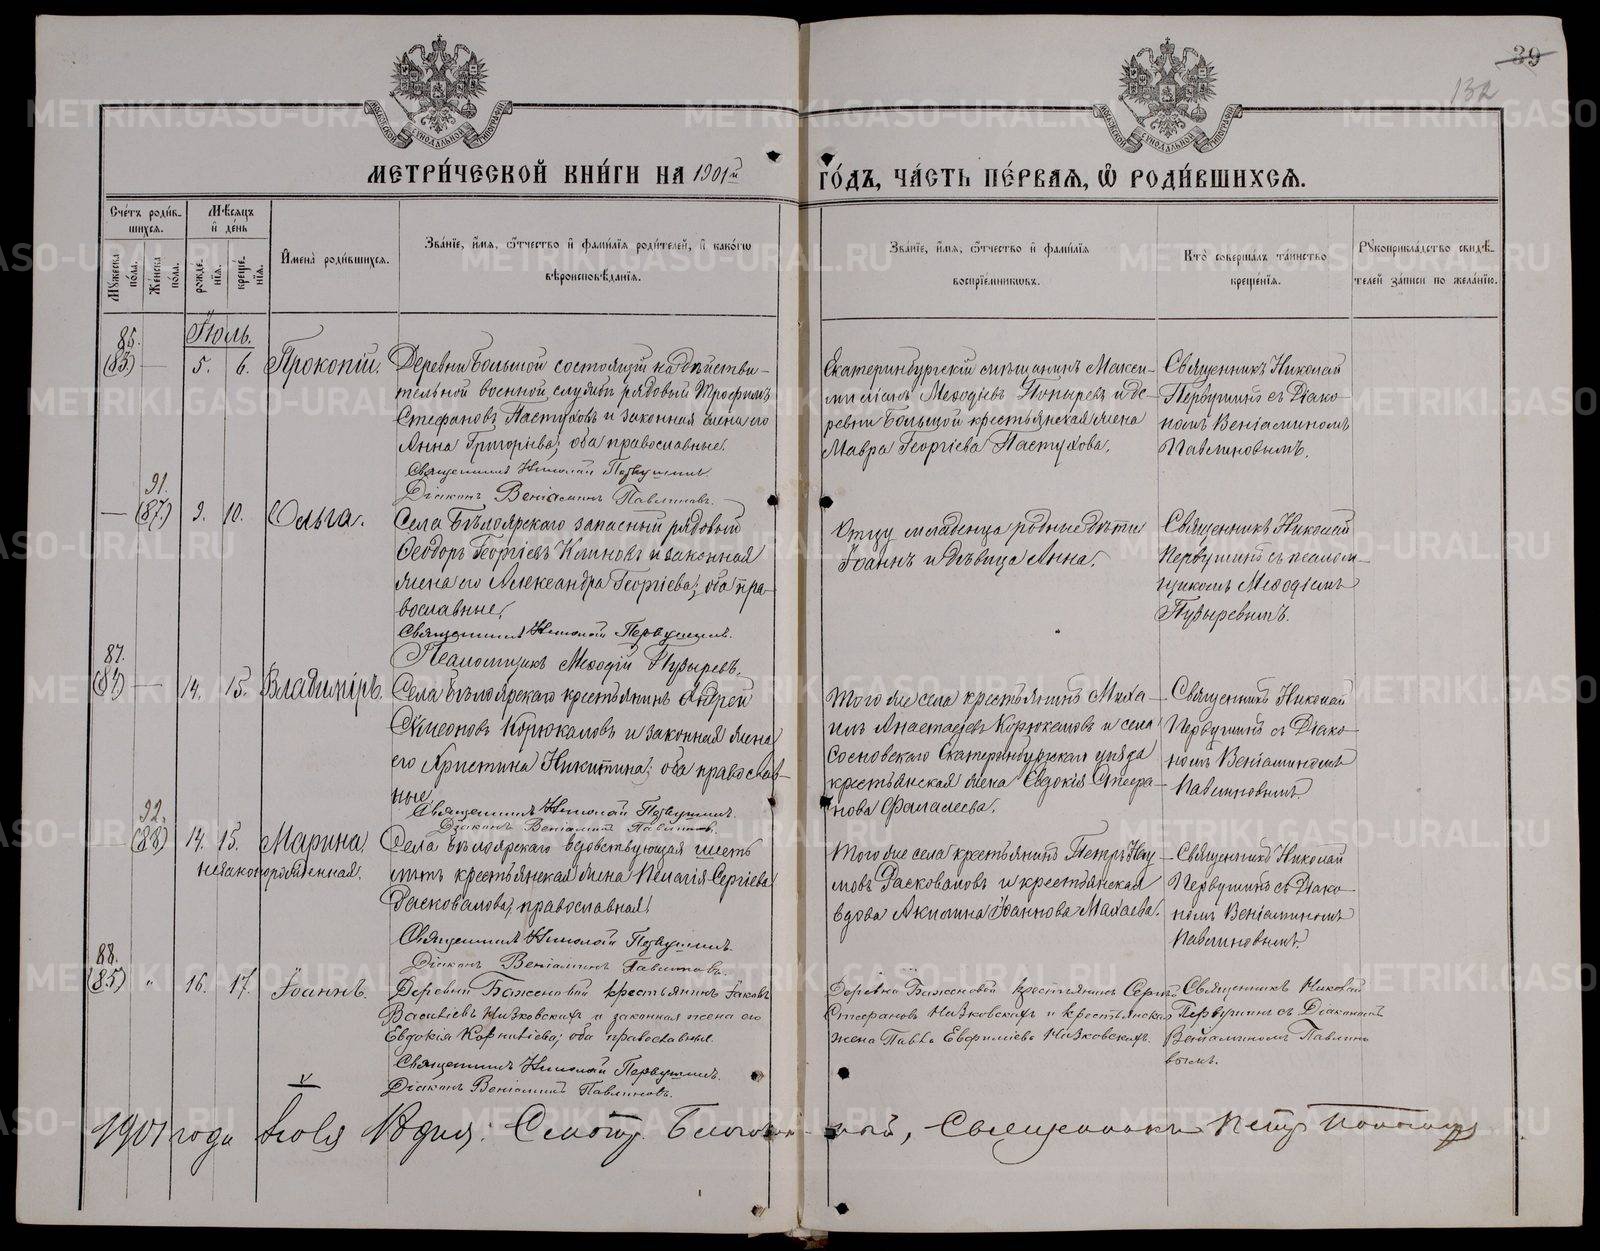 39
132
МЕТРИ́ЧЕСКОЙ КНИ́ГИ НА 1901й ГО́ДЪ, ЧА́СТЬ ПЕ́РВАЯ, Ѡ РОДИ́ВШИХСЯ.
Сче́тъ роди́в-
шихся.
Му́жеска по́ла.
Же́нска по́ла.
Мѣ́сяцъ
и де́нь
рожде́нія.
креще́нія.
Имена̀ роди́вшихся.
Зва́ніе, и́мя, о́тчество и фами́лія роди́телей, и како́гѡ
вѣроисповѣ́данія.
Зва́ніе, и́мя, о́тчество и фами́лія
воспріе́мниковъ.
Кто̀ соверша́лъ та́инство
креще́нія.
Рꙋкоприкла́дство свидѣ́-
телей за́писи по жела́нію.
Іюль.
85.
(83) — 5. 6. Прокопій.
Деревни Большой состоящій на дѣйстви-
тельной военной службѣ рядовый Трофимъ
Стефановъ Пастуховъ и законная жена его
Анна Григоріева; оба православные.
Священникъ Николай Первушинъ.
Діаконъ Веніаминъ Павлиновъ.
Екатеринбургскій мѣщанинъ Макси-
миліанъ Меѳодіевъ Пузыревъ и де-
ревни Большой крестьянская жена
Мавра Георгіева Пастухова.
Священникъ Николай
Первушинъ съ Діако-
номъ Веніаминомъ
Павлиновымъ.
91.
— (87) 9. 10. Ольга.
Села Бѣлоярскаго запасный рядовый
Ѳеодоръ Георгіевъ Клиновъ и законная
жена его Александра Георгіева; оба пра-
вославные.
Священникъ Николай Первушинъ.
Псаломщикъ Меѳодій Пузыревъ.
Отцу младенца родные дѣти
Іоаннъ и дѣвица Анна.
Священникъ Николай
Первушинъ съ псалом-
щикомъ Меѳодіемъ
Пузыревымъ.
87.
(84) — 14. 15. Владиміръ.
Села Бѣлоярскаго крестьянинъ Андрей
Симеоновъ Корюкаловъ и законная жена
его Христина Никитина; оба православ-
ные.
Священникъ Николай Первушинъ.
Діаконъ Веніаминъ Павлиновъ.
Того же села крестьянинъ Миха-
илъ Анастасіевъ Корюкаловъ и села
Сосновскаго Екатеринбургскаго уѣзда
крестьянская жена Евдокія Стефа-
нова Фалалеева.
Священникъ Николай
Первушинъ съ Діако-
номъ Веніаминомъ
Павлиновымъ.
92.
(88) 14. 15. Марина,
незаконорожденная.
Села Бѣлоярскаго вдовствующая шесть
лѣтъ крестьянская жена Пелагія Сергіева
Расковалова; православная.
Священникъ Николай Первушинъ.
Діаконъ Веніаминъ Павлиновъ.
Того же села крестьянинъ Петръ Нау-
мовъ Расковаловъ и крестьянская
вдова Акилина Іоаннова Малаева.
Священникъ Николай
Первушинъ съ Діако-
номъ Веніаминомъ
Павлиновымъ.
88.
(85) " 16. 17. Іоаннъ.
Деревни Баженовой крестьянинъ Іаковъ
Васильевъ Низковскихъ и законная жена его
Евдокія Корниліева; оба православные.
Священникъ Николай Первушинъ.
Діаконъ Веніаминъ Павлиновъ.
Деревни Баженовой крестьянинъ Сергій
Стефановъ Низковскихъ и крестьянская
жена Павла Евфиміева Низковскихъ.
Священникъ Николай
Первушинъ съ Діакономъ
Веніаминомъ Павлино-
вымъ.
1901 года Іюля 18 дня. Смотр. Благочин-ный, Священникъ Петръ